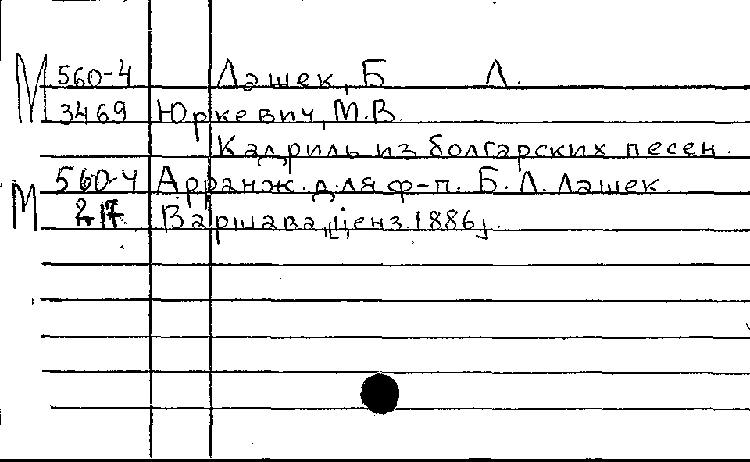 М 560-4 Лашек, Б Л.
3469 Юркевич, М.В.
Кадриль из болгарских песен.
М 560-4 Арранж. для ф-п. Б. Л. Лашек
217 Варшава, [ценз. 1886].